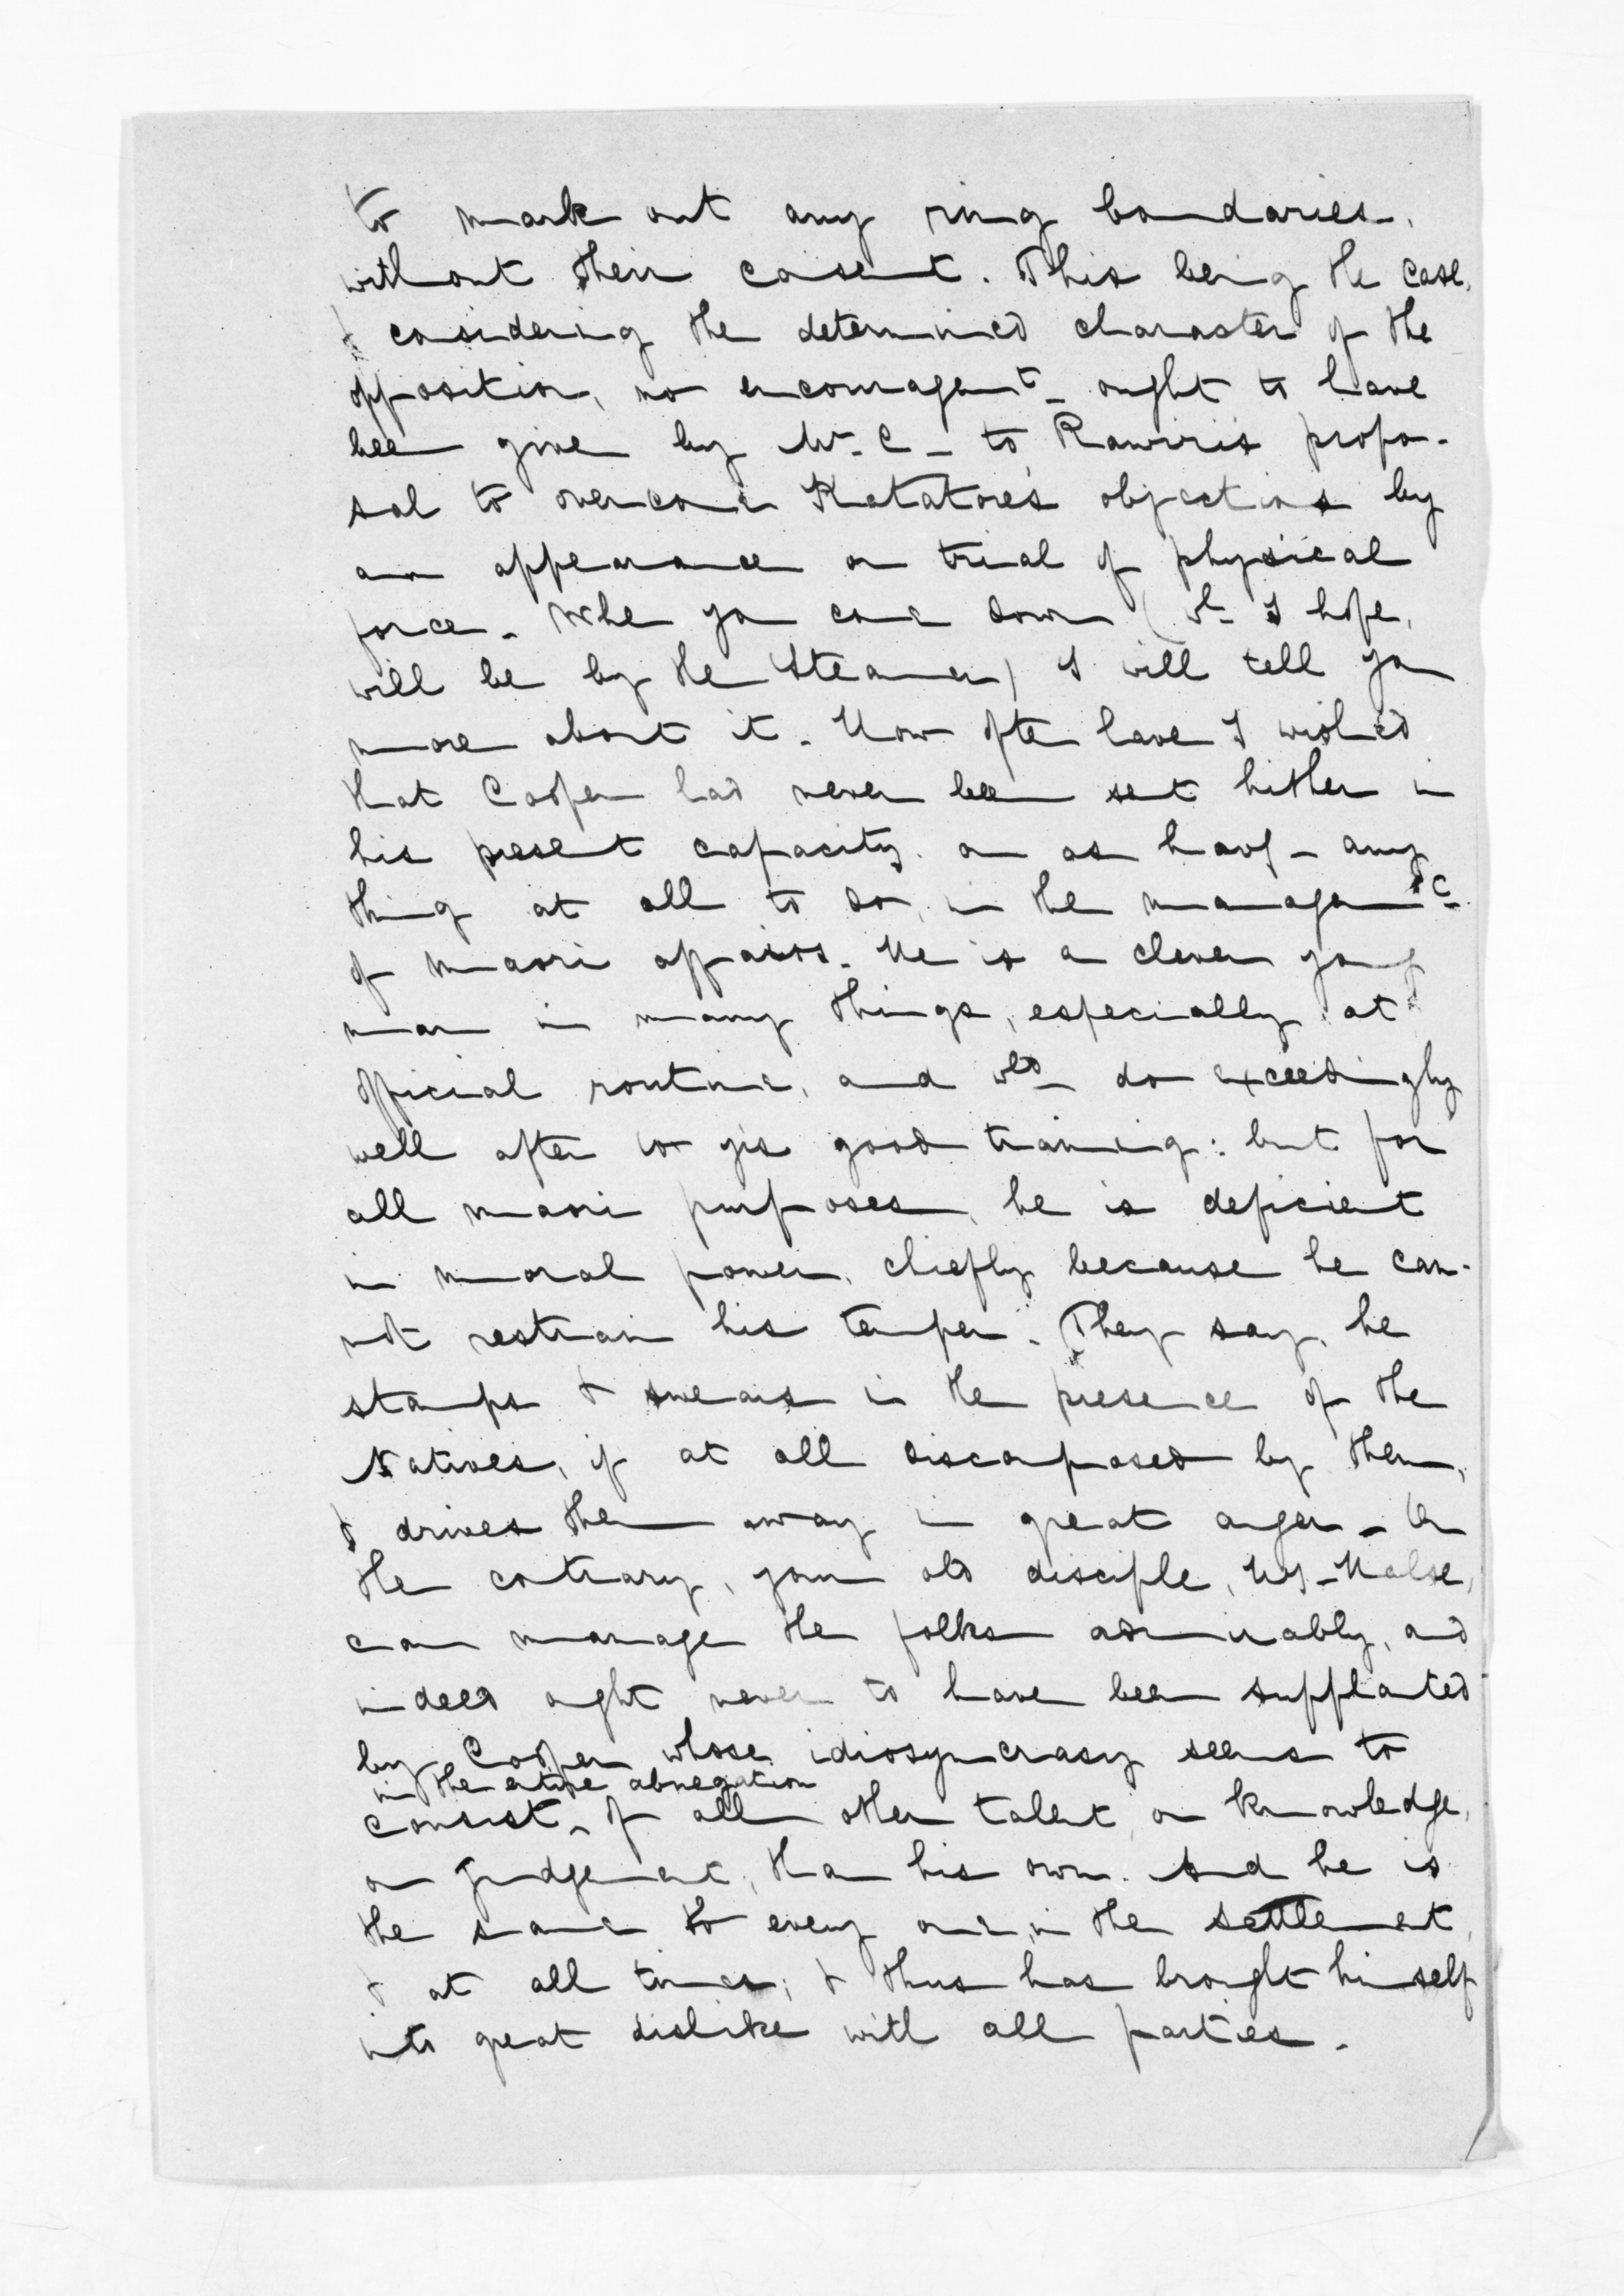 to mark out any ring boundaries,
without their consent. This being the case,
& considering the determined character of the
opposition, no encouragemt. ought to have
been given by Mr. C. to Rawiri's propo-
sal to overcome Katatore's objections by
an appearance or trial of physical
force. When you come down (wh. I hope,
will be by the Steamer) I will tell you
more about it. How often have I wished
that Cooper had never been sent hither in
his present capacity, or as havg. any
thing at all to do, in the managemt.
of Maori affairs. He is a clever young
man in many things, especially at
official routine, and wld. do exceedingly
well after 10 yrs good training: but for
all maori purposes, he is deficient
in moral power, chiefly because he can-
not restrain his temper. They say, he
stamps & swears in the presence of the
Natives, if at all discomposed by them,
& drives them away in great anger. On
the contrary, your old disciple, Hy. Halse,
can manage the folks admirably, and
indeed ought never to have been supplanted
by Cooper whose idiosyncrasy seems to
in the entire abnegation
consist ^ of all other talent, or knowledge,
or Judgement, than his own. And he is
the same to every one, in the settlement,
& at all times; & thus has brought himself
into great dislike with all parties.